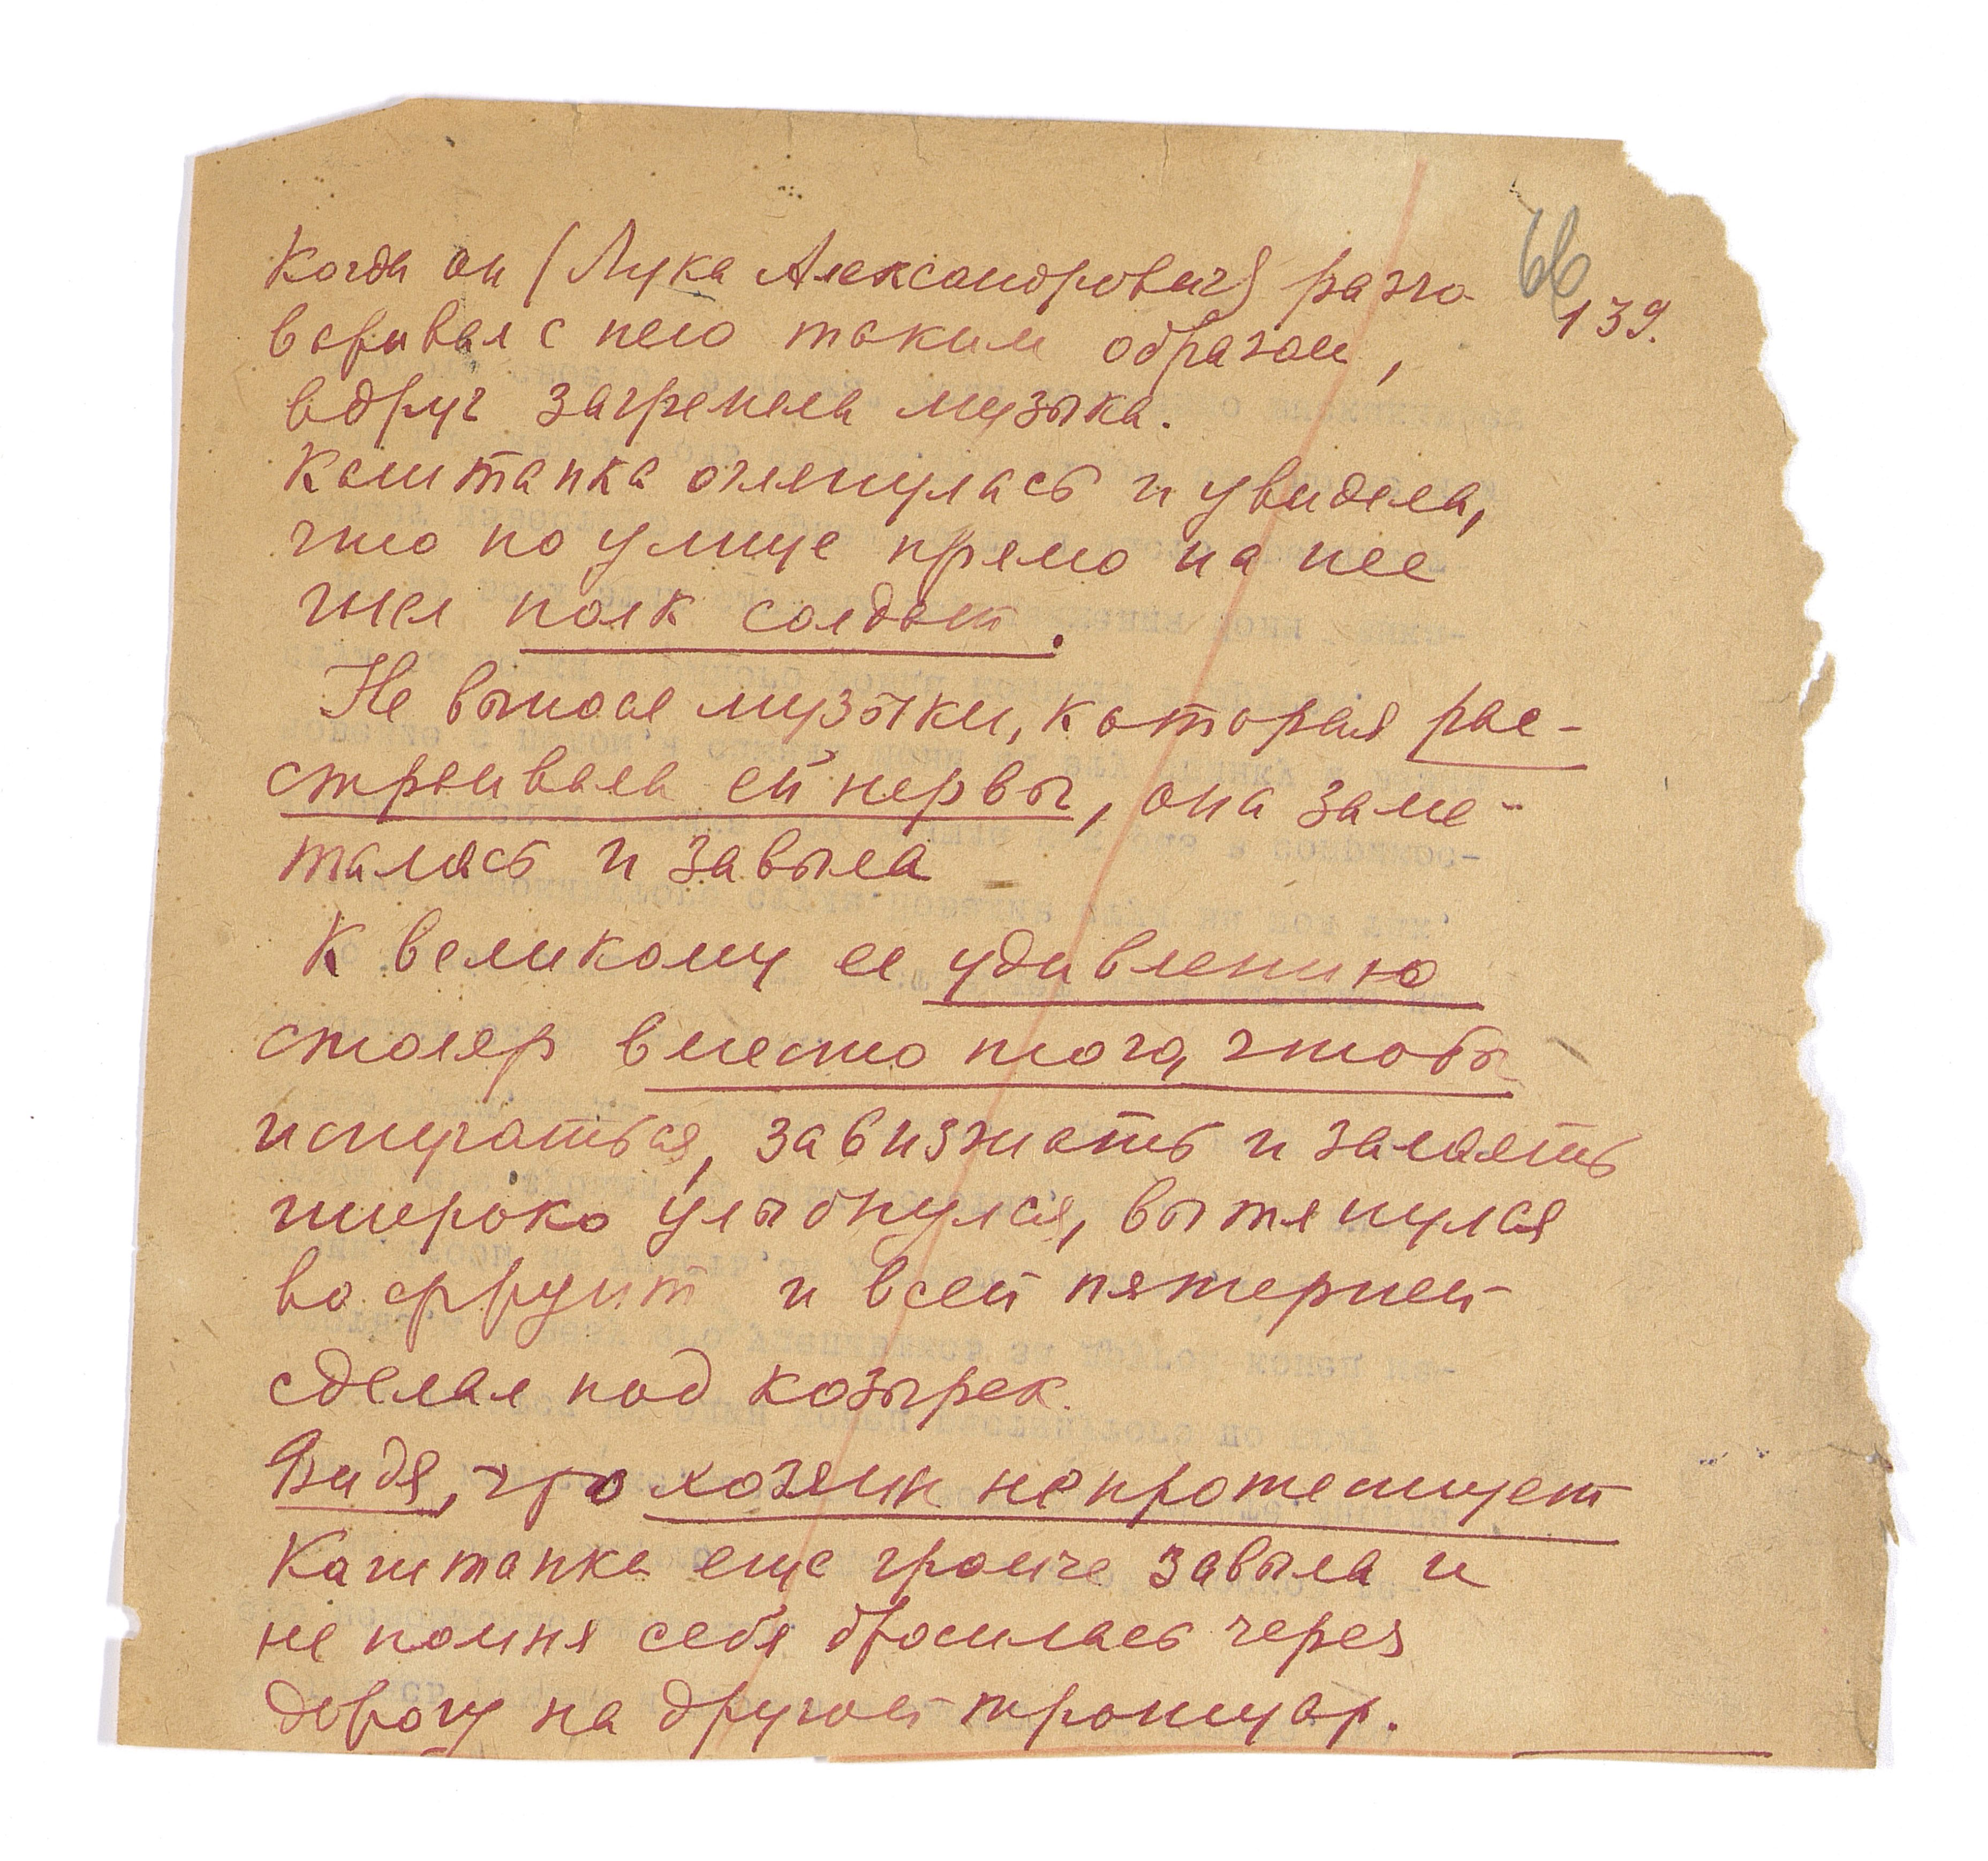 66
139.
Когда он (Лука Александрович) разго
варивал с нею таким образом,
вдруг загремела музыка.
Каштанка оглянулась и увидела,
что по улице прямо на нее
шел полк солдат.
Не вынося музыки, которая рас-
строивала ей нервы, она заме-
талась и завыла
К великому ее удивлению
столяр вместо того, чтобы
испугаться, завизжать и залаять
широко улыбнулся, вытянулся
во фрунт и всей пятерней
сделал под козырек.
Видя, что хозяин не протестует
Каштанка еще громче завыла и
не помня себя бросилась через
дорогу на другой тротуар.